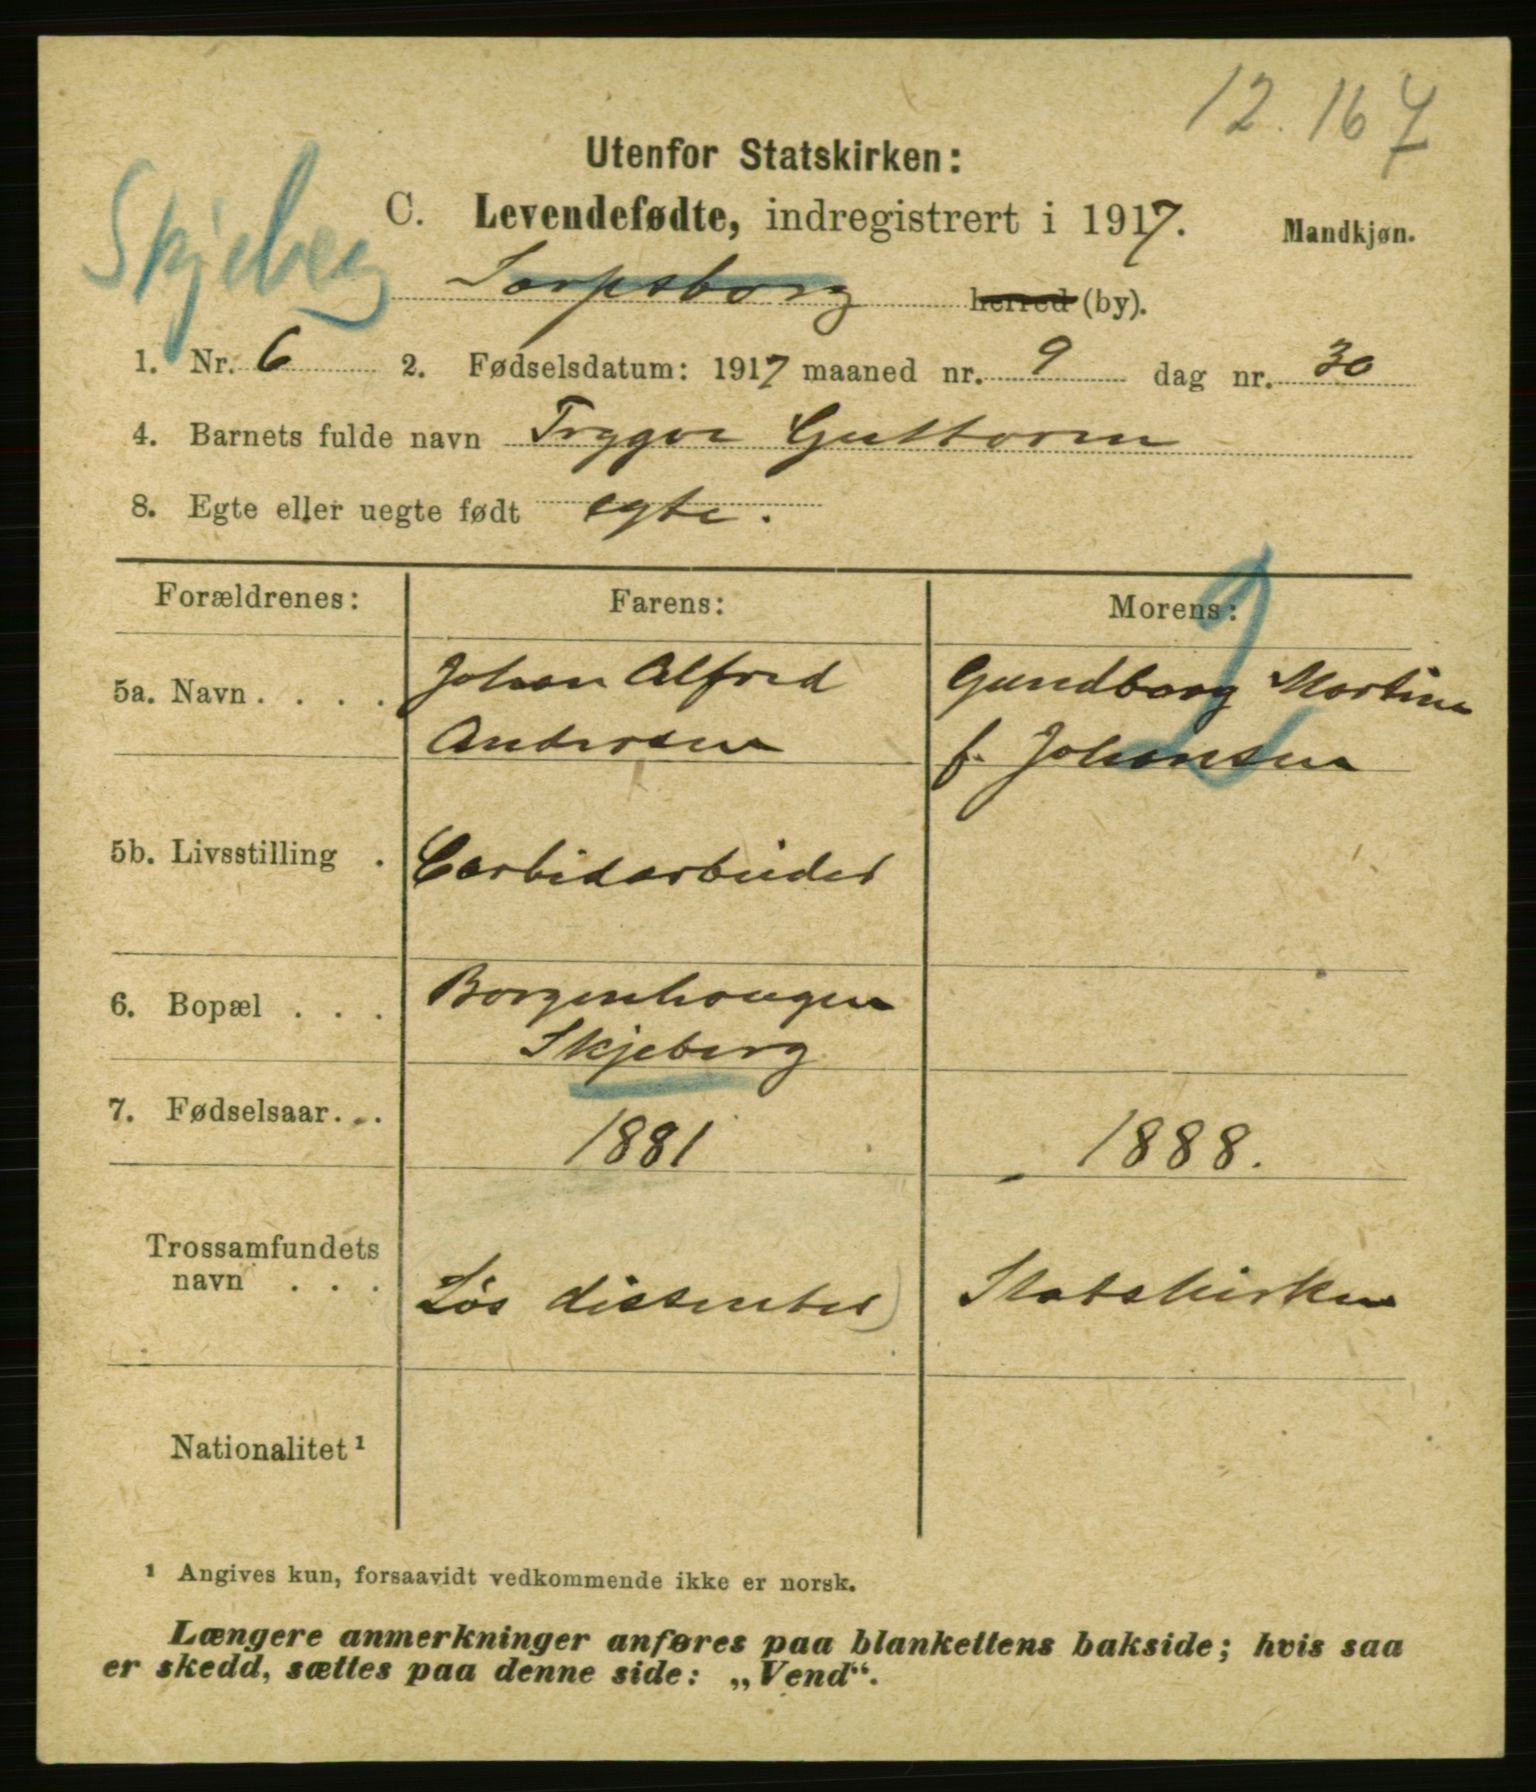 12.167
Utenfor Statskirken:
Skjeberg
C. Levendefødte, indregistrert i 1917. Mandkjøn.
Sarpsborg herred (by).
1. Nr. 6 2. Fødselsdatum: 1917 maaned nr. 9 dag nr. 30
4. Barnets fulde navn Trygve Guttorm
8. Egte eller uegte født egte.
Forældrenes: Farens: Morens:
5a. Navn . . . . Johan Alfred Gundborg Martine
Andersen f. Johansen
5b. Livsstilling . Carbidarbeider
6. Bopæl . . . Borgenhaugen
Skjeberg
7. Fødselsaar. . . 1881 1888.
Trossamfundets
navn . . . Løs dissenter) Statskirken
Nationalitet¹
¹ Angives kun, forsaavidt vedkommende ikke er norsk.
Længere anmerkninger anføres paa blankettens bakside; hvis saa
er skedd, sættes paa denne side: „Vend“.